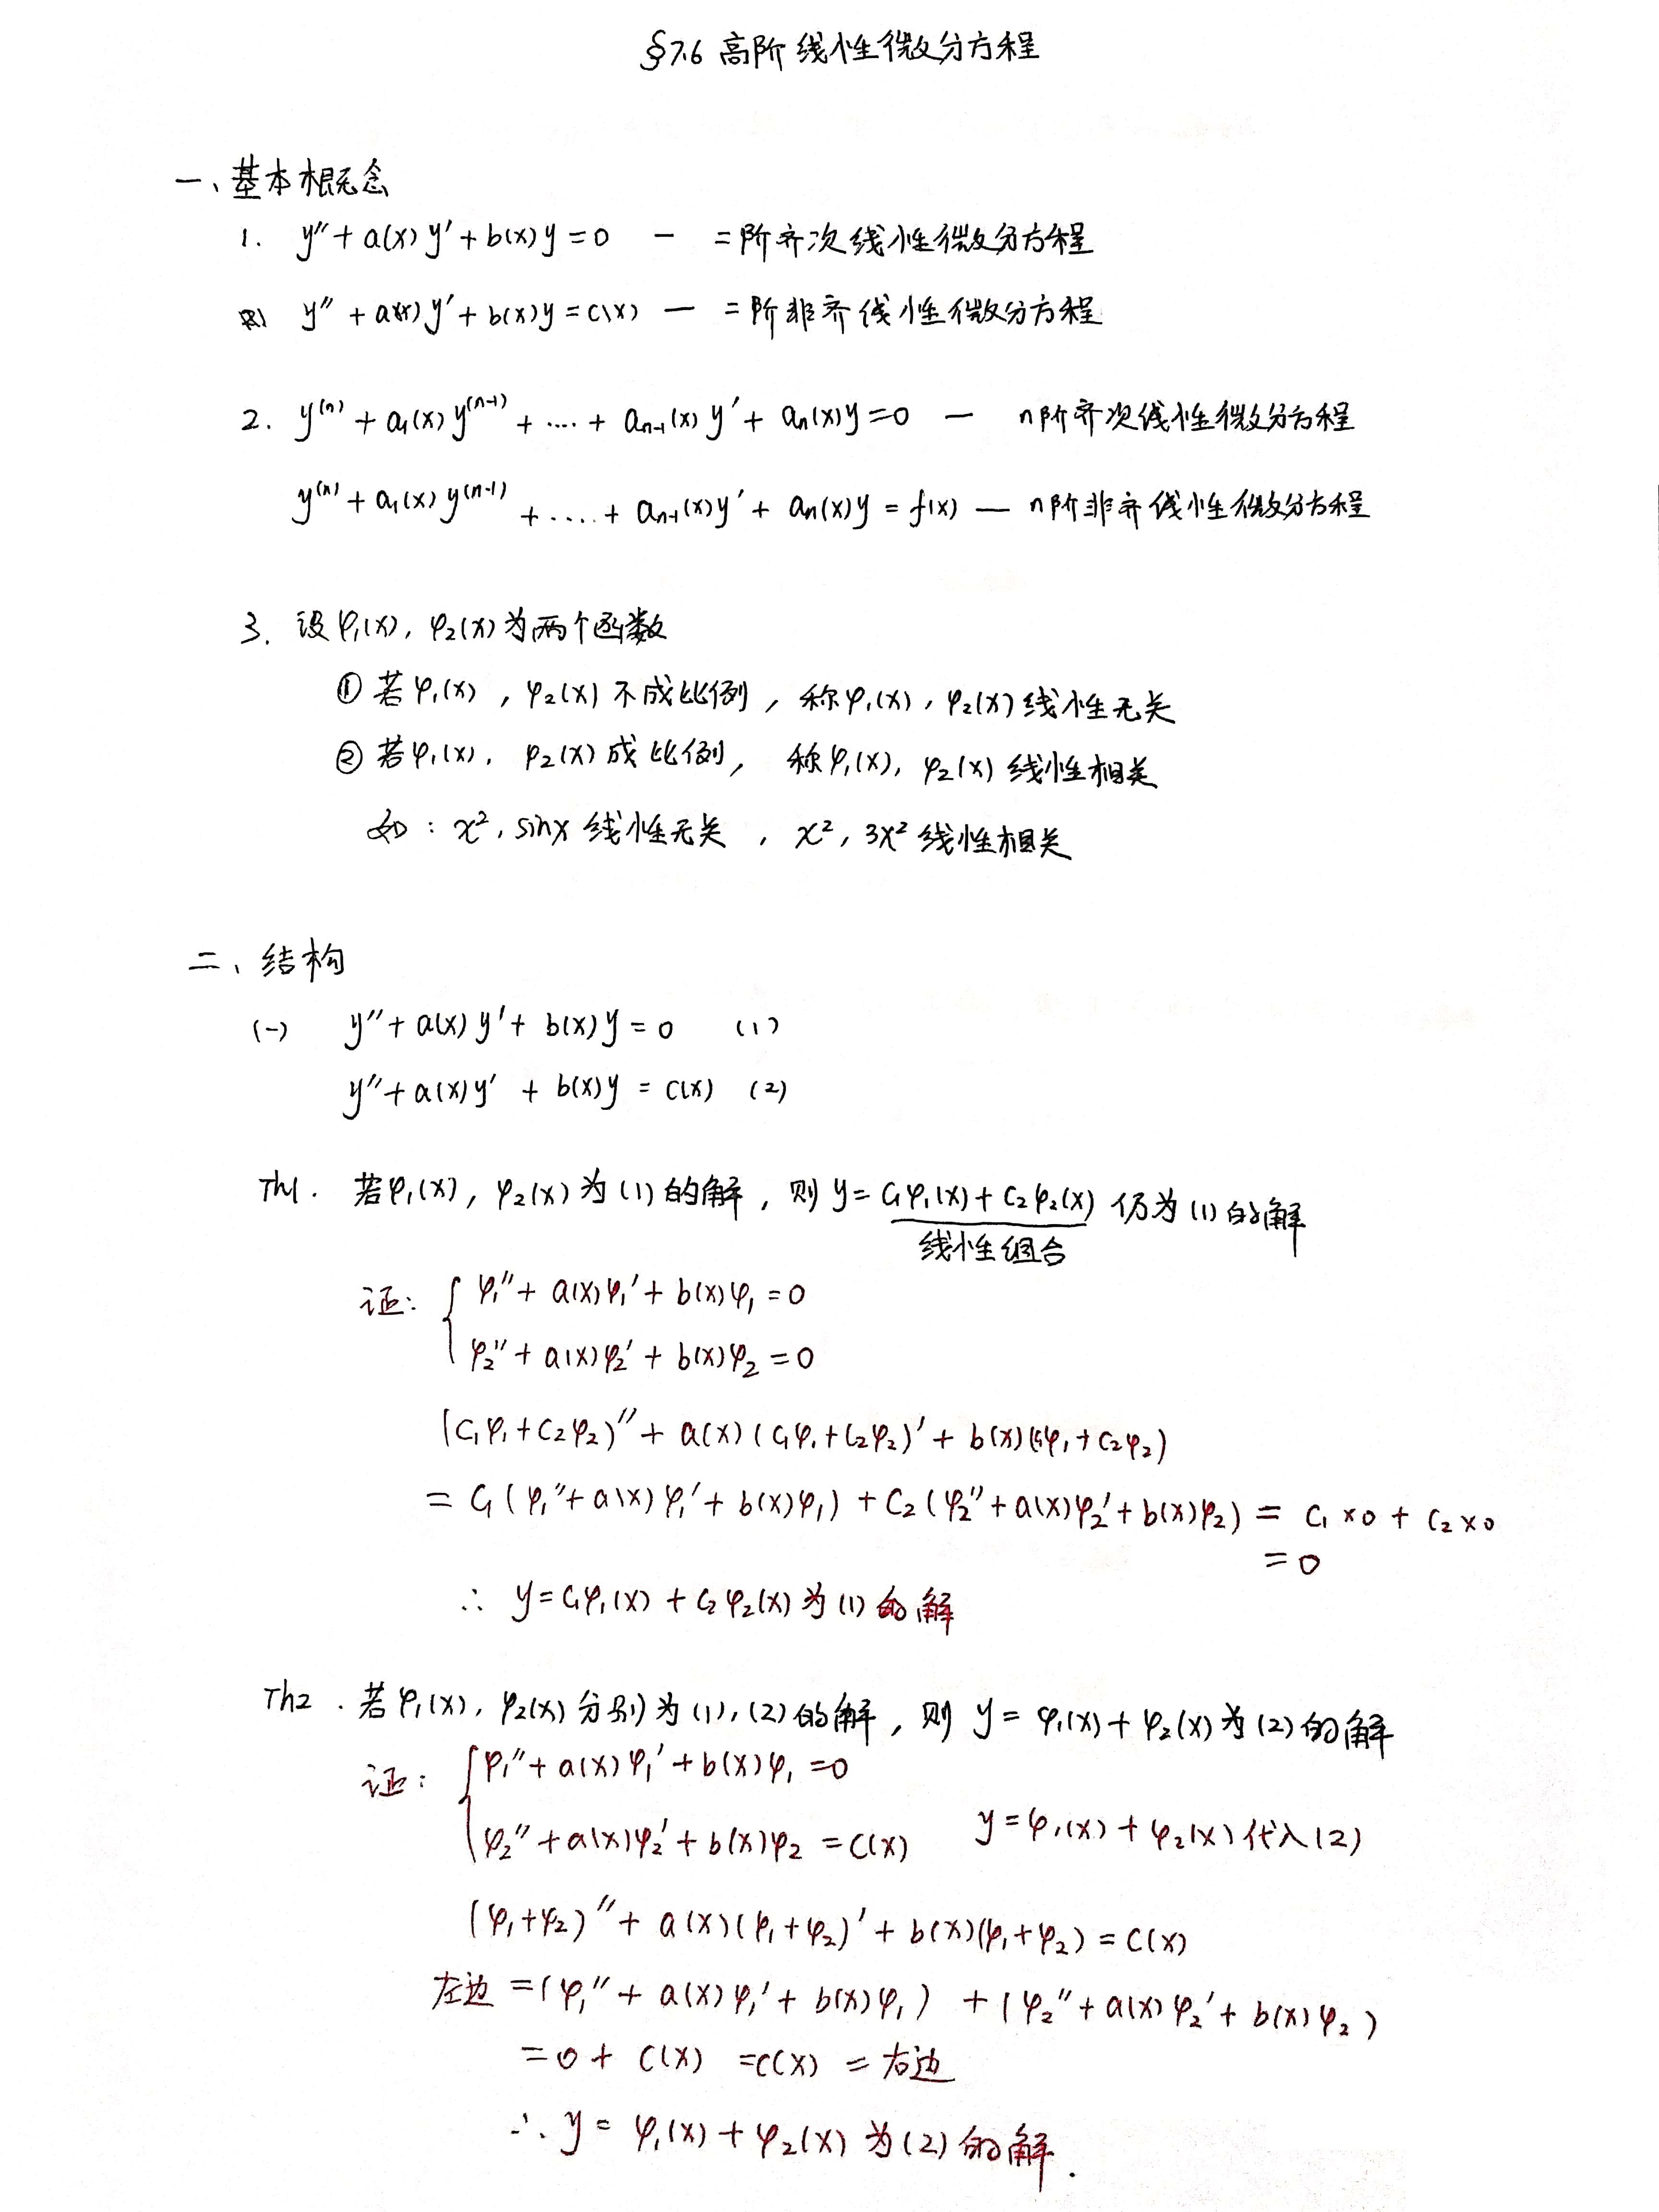 §7.6 高阶线性微分方程
一、基本概念
1. y″+a(x)y′+b(x)y=0 — 二阶齐次线性微分方程
y″+a(x)y′+b(x)y=c(x) — 二阶非齐线性微分方程
2. y⁽ⁿ⁾+a₁(x)y⁽ⁿ⁻¹⁾+....+aₙ₋₁(x)y′+aₙ(x)y=0 — n阶齐次线性微分方程
y⁽ⁿ⁾+a₁(x)y⁽ⁿ⁻¹⁾+....+aₙ₋₁(x)y′+aₙ(x)y=f(x) — n阶非齐线性微分方程
3. 设φ₁(x), φ₂(x)为两个函数
① 若φ₁(x), φ₂(x)不成比例, 称φ₁(x), φ₂(x)线性无关
② 若φ₁(x), φ₂(x)成比例, 称φ₁(x), φ₂(x)线性相关
如: x², sinx线性无关, x², 3x²线性相关
二、结构
(一) y″+a(x)y′+b(x)y=0 (1)
y″+a(x)y′+b(x)y=c(x) (2)
Th1. 若φ₁(x), φ₂(x)为(1)的解, 则y=C₁φ₁(x)+C₂φ₂(x)仍为(1)的解
线性组合
证: { φ₁″+a(x)φ₁′+b(x)φ₁=0
φ₂″+a(x)φ₂′+b(x)φ₂=0
(C₁φ₁+C₂φ₂)″+a(x)(C₁φ₁+C₂φ₂)′+b(x)(C₁φ₁+C₂φ₂)
=C₁(φ₁″+a(x)φ₁′+b(x)φ₁)+C₂(φ₂″+a(x)φ₂′+b(x)φ₂)=C₁×0+C₂×0
=0
∴ y=C₁φ₁(x)+C₂φ₂(x)为(1)的解
Th2. 若φ₁(x), φ₂(x)分别为(1),(2)的解, 则y=φ₁(x)+φ₂(x)为(2)的解
证: { φ₁″+a(x)φ₁′+b(x)φ₁=0
φ₂″+a(x)φ₂′+b(x)φ₂=C(x) y=φ₁(x)+φ₂(x)代入(2)
(φ₁+φ₂)″+a(x)(φ₁+φ₂)′+b(x)(φ₁+φ₂)=C(x)
左边=(φ₁″+a(x)φ₁′+b(x)φ₁)+(φ₂″+a(x)φ₂′+b(x)φ₂)
=0+C(x)=C(x)=右边
∴ y=φ₁(x)+φ₂(x)为(2)的解.